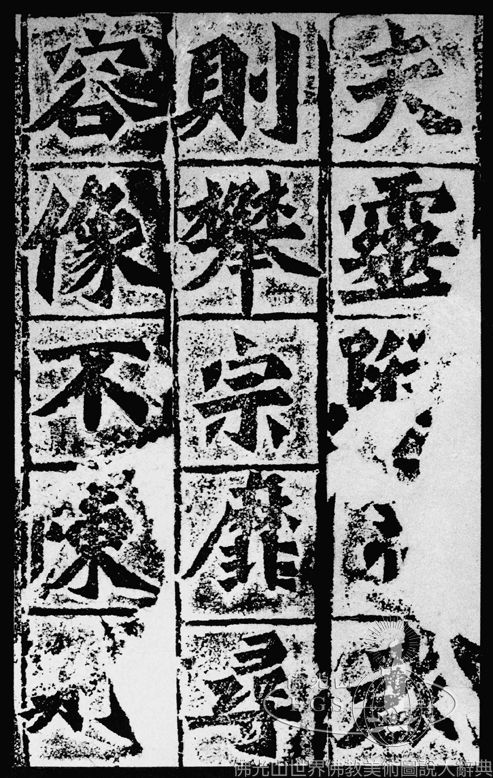 夫靈
則攀宗靡尋
容像不陳
佛光山世界佛教美術圖說大辭典